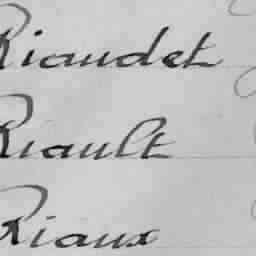 Riaudet
Riault
Riaux